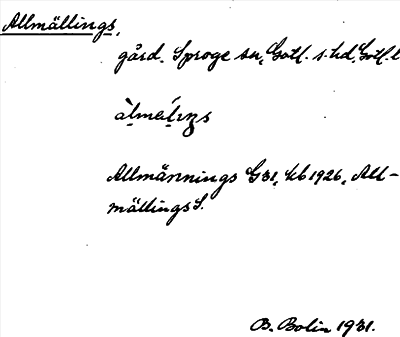 Allmällings,
gård. Sproge sn, Gotl. s. hd, Gotl. l
àlmeĺıŋs
Allmännings G 31, kb 1926, All-
mällings S.
B. Bolin 1931.